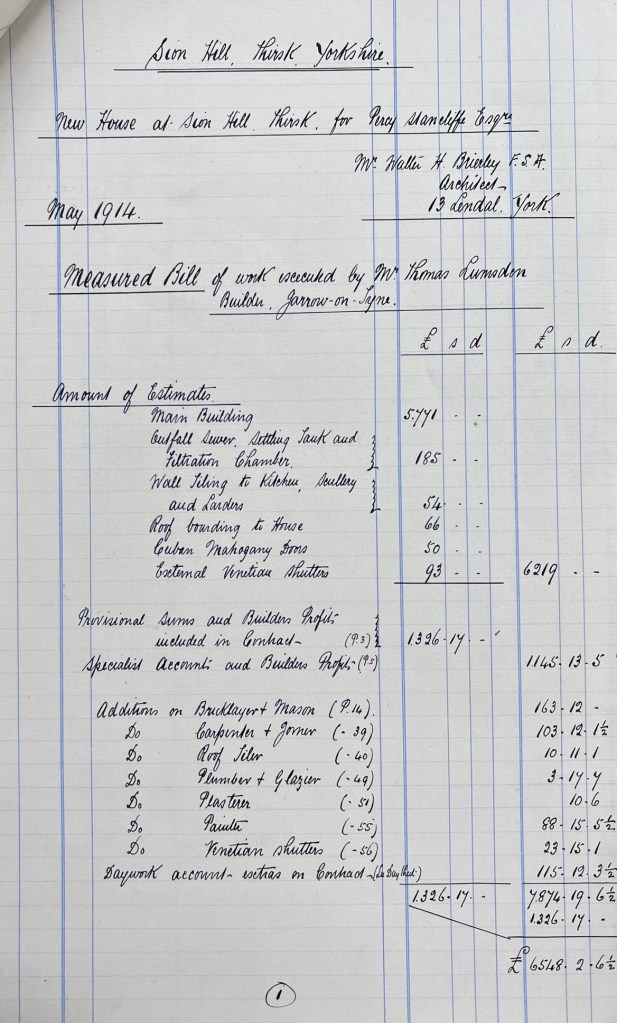 Sion Hill, Thirsk, Yorkshire.
New House at Sion Hill, Thirsk, for Percy Stancliffe Esqre
Mr Walter H Brierley F.S.A.
Architect
May 1914.
13 Lendal, York.
Measured Bill of work executed by Mr Thomas Lumsden
Builder, Jarrow-on-Tyne.
£ s d £ s d.
Amount of Estimates.
Main Building 5,771 - -
Outfall Sewer, Settling Tank and
Filtration Chamber. 185 - -
Wall Tiling to Kitchen, Scullery
and Larders 54 - -
Roof boarding to House 66 - -
Cuban Mahogany Doors 50 - -
External Venetian Shutters 93 - - 6219 - -
Provisional Sums and Builders Profit
included in Contract (P.3) 1326-17. -
Specialist Accounts and Builders Profit (P.5) 1145-13-5
Additions on Bricklayer + Mason (P.14). 163-12 -
Do Carpenter + Joiner (- 39) 103-12-1½
Do Roof Tiler (- 40) 10-11-1
Do Plumber + Glazier (- 49) 3-17-7
Do Plasterer (- 51) 10.6
Do Painter (- 55) 88-15.5½
Do Venetian Shutters (- 56) 23-15.1
Daywork account - extras on Contract 115-12.3½
1326-17. - 7,874-19-6½
1326-17. -
£ 6548. 2.6½
1